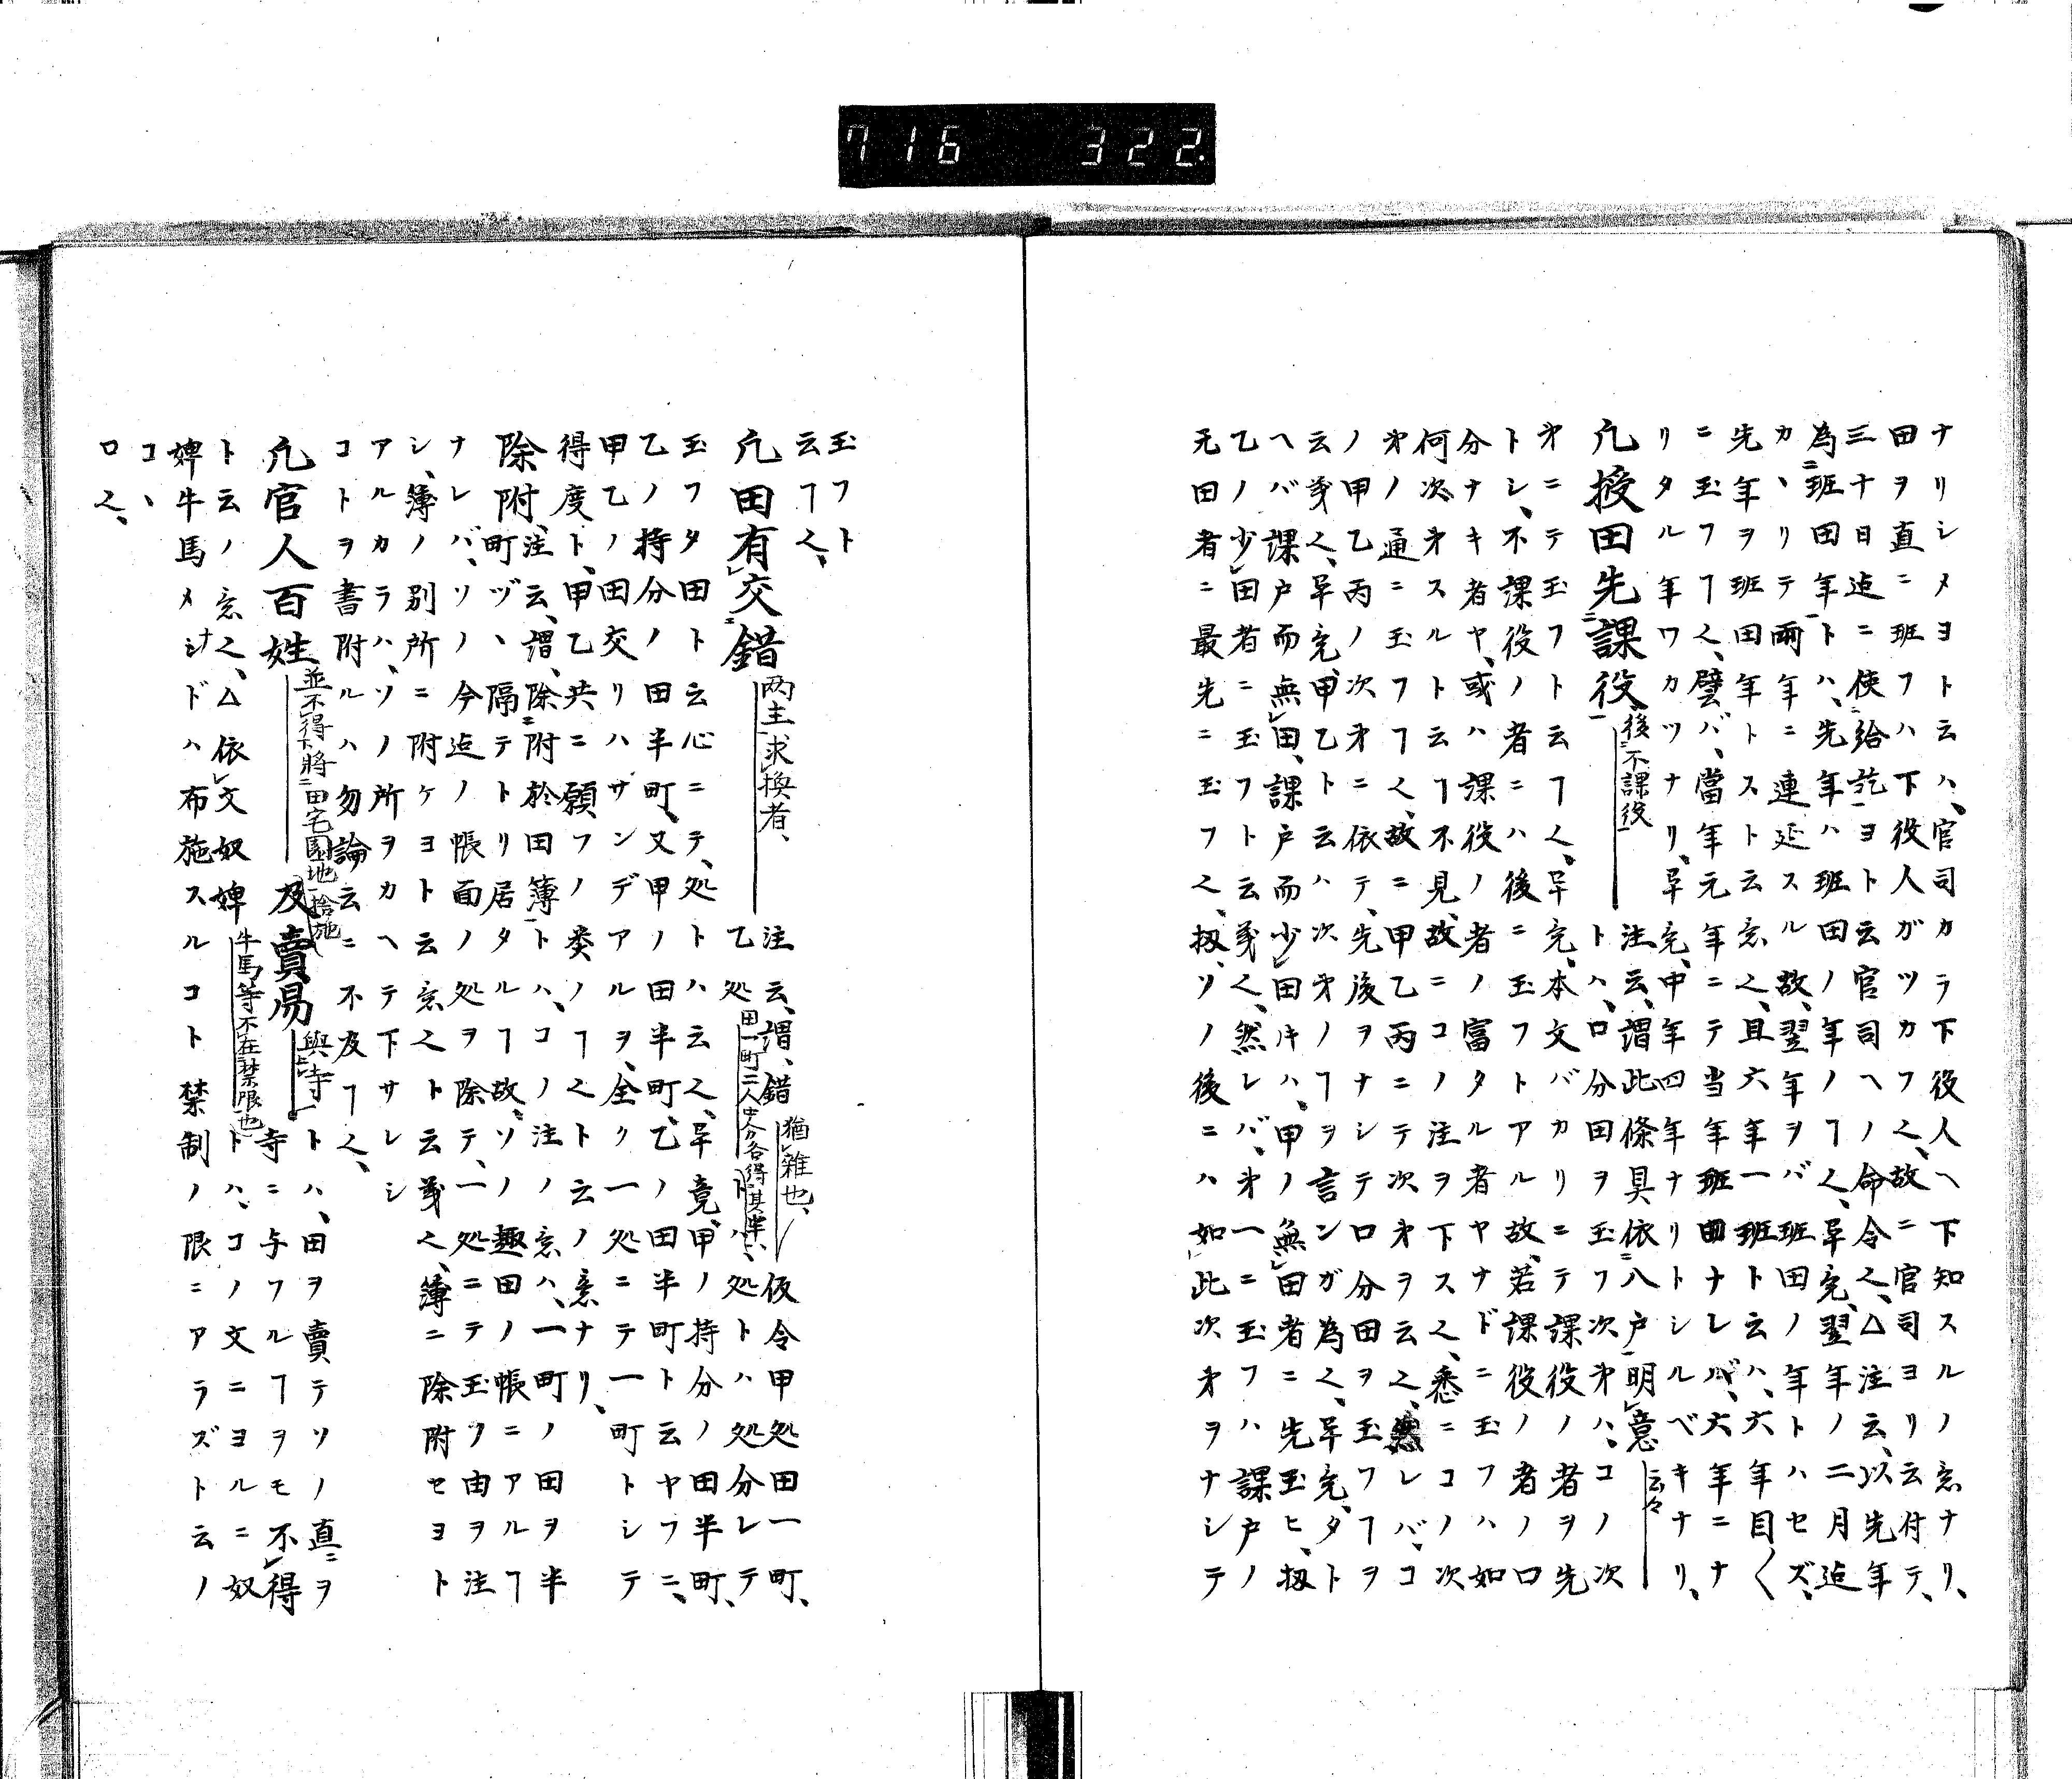 716 322
ナリシメヨト云ハ、官司カラ下役人ヘ下知スルノ意ナリ、
田ヲ直ニ班フハ下役人ガツカフ〻、故ニ官司ヨリ云付テ、
三十日迠ニ使給訖ヨト云官司ヘノ命令〻、△注云、以先年
為班田年トハ、先年ハ班田ノ年ノヿ〻、早竟、翌年ノ二月迠
カヽリテ兩年ニ連延スル故、翌年ヲバ班田ノ年トハセズ、
先年ヲ班田年トスト云意〻、且六年一班ト云ハ、六年目〱
ニ玉フヿ〻、譬バ、當年元年ニテ当年班田ナレバ、六年ニナ
リタル年ワカツナリ、早竟、申年四年ナリトシルベキナリ、
凡授田先課役 後不課役 注云、謂此條具依八戸明意 云々
トハ、口分田ヲ玉フ次第ハ、コノ次
第ニテ玉フト云ヿ〻、早竟、本文バカリニテ課役ノ者ヲ先
トシ、不課役ノ者ニハ後ニ玉フトアル故、若課役ノ者ノ口
分ナキ者ヤ、或ハ課役ノ者ノ富タル者ヤナドニ玉フハ如
何次第スルト云ヿ不見、故ニコノ注ヲ下ス〻、悉ニコノ次
第ノ通ニ玉フヿ〻、故ニ甲乙丙ニテ次第ヲ云〻、悉レバ、コ
ノ甲乙丙ノ次第ニ依テ、先後ヲナシテ口分田ヲ玉フヿヲ
云義〻、早竟、甲乙ト云ハ次第ノヿヲ言ンガ為〻、早竟、タト
ヘバ課戸而無田、課戸而少田キハ、甲ノ無田者ニ先玉ヒ、扨
乙ノ少田者ニ玉フト云義〻、然レバ、第一ニ玉フハ課戸ノ
无田者ニ最先ニ玉フ〻、扨、ソノ後ニハ如此次第ヲナシテ
玉フト
云ヿ〻、
凡田有交錯 両主求換者、 注云、謂、錯 猶雑也、 仮令甲処田一町、
乙処 田一町二人中分各得其半 ハ、処トハ処分レテ
玉フタ田ト云心ニテ、処トハ云〻、早竟、甲ノ持分ノ田半町、
乙ノ持分ノ田半町、又甲ノ田半町、乙ノ田半町ト云ヤフニ、
甲乙ノ田交リハサンデアルヲ、全ク一処ニテ一町トシテ
得度ト、甲乙共ニ願フノ類ノヿ〻ト云ノ意ナリ、
除附、注云、謂、除附於田簿トハ、コノ注ノ意ハ、一町ノ田ヲ半
町ヅヽ隔テトリ居タルヿ故、ソノ趣田ノ帳ニアルヿ
ナレバ、ソノ今迠ノ帳面ノ処ヲ除テ、一処ニテ玉フ由ヲ注
シ、簿ノ別所ニ附ケヨト云意〻ト云義〻、簿ニ除附セヨト
アルカラハ、ソノ所ヲカヘテ下サレシ
コトヲ書附ルハ勿論云ニ不及ヿ〻、
凡官人百姓 並不得下将田宅園地捨施 及賣易 與寺 トハ、田ヲ賣テソノ直ヲ
寺ニ与フルヿヲモ不得
ト云ノ意〻、△依文奴婢 牛馬等不在禁限也 トハ、コノ文ニヨルニ奴
婢牛馬メシナドハ布施スルコト禁制ノ限ニアラズト云ノ
コヽ
ロ〻、